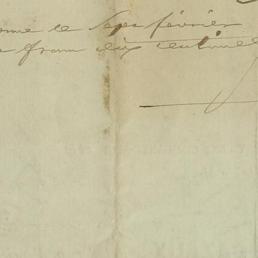 le Sept février
franc dix centimes